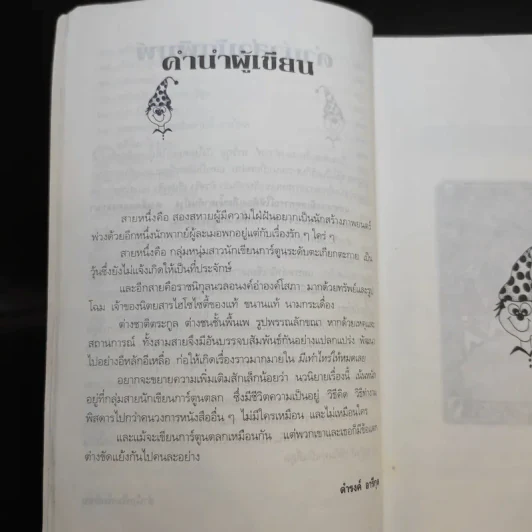 คำนำผู้เขียน
สายหนึ่งคือ สองสหายผู้มีความใฝ่ฝันอยากเป็นนักสร้างภาพยนตร์
พ่วงด้วยอีกหนึ่งนักพากย์ผู้ละเมอพกอยู่แต่กับเรื่องรัก ๆ ใคร่ ๆ
สายหนึ่งคือ กลุ่มหนุ่มสาวนักเขียนการ์ตูนระดับตะเกียกตะกาย เป็น
วุ้นซึ่งยังไม่แจ้งเกิดให้เป็นที่ประจักษ์
และอีกสายคือราชนิกุลนวลอนงค์อำองค์โสภา มากด้วยทรัพย์และรูป
โฉม เจ้าของนิตยสารไฮโซไซตี้ของแท้ ขนานแท้ นามกระเดื่อง ....
ต่างชาติตระกูล ต่างชนชั้นพื้นเพ รูปพรรณลักขณา หากด้วยเหตุและ
สถานการณ์ ทั้งสามสายจึงมีอันบรรจบสัมพันธ์กันอย่างแปลกแปร่ง พัฒนา
ไปอย่างอีหลักอีเหลื่อ ก่อให้เกิดเรื่องราวมากมายใน มีเท่าไหร่ให้หมดเลย
อยากจะขยายความเพิ่มเติมสักเล็กน้อยว่า นวนิยายเรื่องนี้ เน้นหนัก
อยู่ที่กลุ่มสายนักเขียนการ์ตูนตลก ซึ่งมีชีวิตความเป็นอยู่ วิธีคิด วิธีทำงาน
พิสดารไปกว่าคนวงการหนังสืออื่น ๆ ไม่มีใครเหมือน และไม่เหมือนใคร
และแม้จะเขียนการ์ตูนตลกเหมือนกัน แต่พวกเขาและเธอก็มีข้อแตก
ต่างขัดแย้งกันไปคนละอย่าง
ดำรงค์ อารีกุล